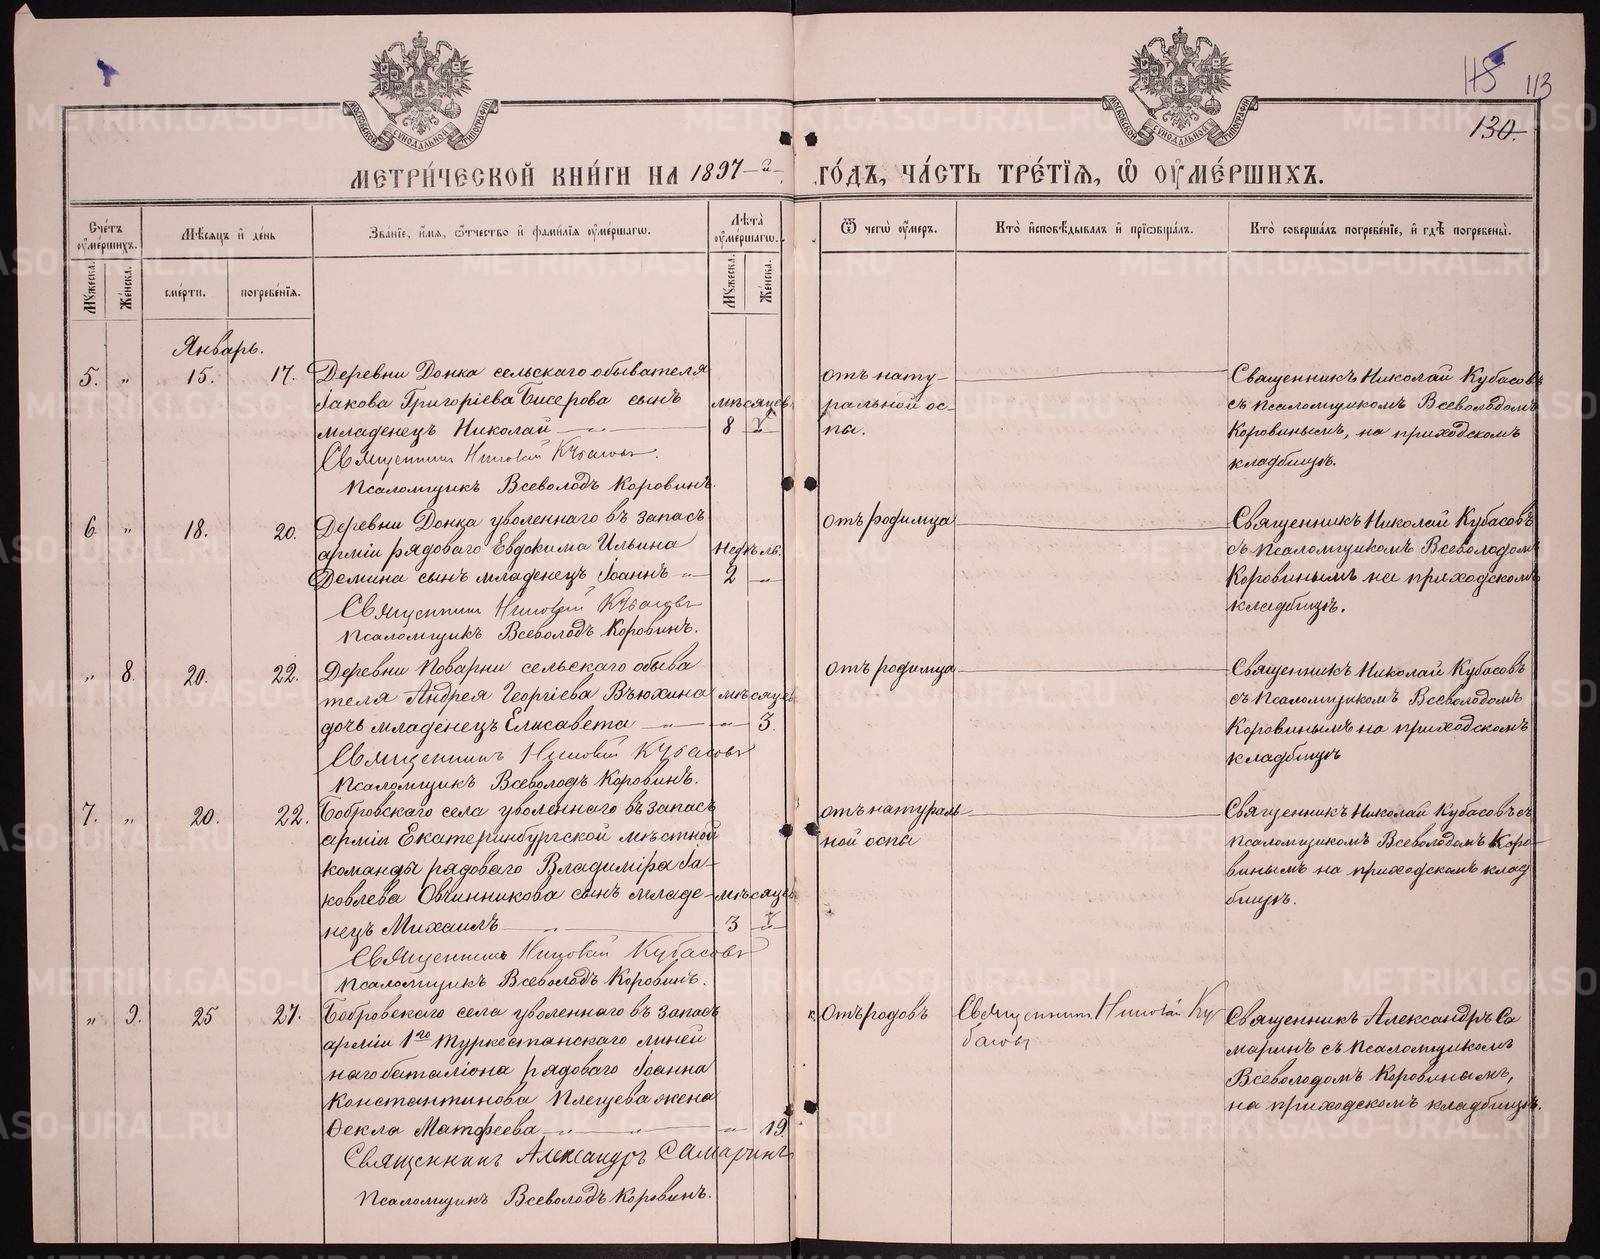 118 113
130.
МОСКОВСКОЙ СѴНОДАЛЬНОЙ ТИПОГРАФІИ
МОСКОВСКОЙ СѴНОДАЛЬНОЙ ТИПОГРАФІИ
МЕТРИ́ЧЕСКОЙ КНИ́ГИ НА 1897-й
ГО́ДЪ, ЧА́СТЬ ТРЕ́ТІѦ, Ѡ҆ ОУ҆МЕ́РШИХЪ.
Сче́тъ оу҆ме́ршихъ.
Мꙋжеска.
Же́нска.
Мѣ́сѧцъ и҆ де́нь
сме́рти.
погребе́нїѧ.
Зва́нїе, и҆́мѧ, ѻ҆́тчество и҆ фами́лїѧ оу҆ме́ршагѡ.
Лѣ́та оу҆ме́ршагѡ.
Мꙋжеска.
Же́нска.
Ѿ чегѡ̀ оу҆́меръ.
Кто̀ и҆сповѣ́дывалъ и҆ прїѡбща́лъ.
Кто̀ соверша́лъ погребе́нїе, и҆ гдѣ̀ погребены̀.
Январь.
5. „ 15. 17.
Деревни Донка сельскаго обывателя
Іакова Григоріева Бисерова сынъ
младенецъ Николай —„—
мѣсяцевъ
8
Священникъ Николай Кубасовъ.
Псаломщикъ Всеволодъ Коровинъ.
отъ нату-
ральной ос-
пы.
Священникъ Николай Кубасовъ
съ псаломщикомъ Всеволодомъ
Коровинымъ, на приходскомъ
кладбищѣ.
6 „ 18. 20.
Деревни Донка уволеннаго въ запасъ
арміи рядоваго Евдокима Ильина
Демина сынъ младенецъ Іоаннъ „—
недѣль.
2 „
Священникъ Николай Кубасовъ
Псаломщикъ Всеволодъ Коровинъ.
отъ родимца
Священникъ Николай Кубасовъ
съ псаломщикомъ Всеволодомъ
Коровинымъ на приходскомъ
кладбищѣ.
„ 8. 20. 22.
Деревни Поварни сельскаго обыва
теля Андрея Георгіева Вьюхина
дочь младенецъ Елисавета —„—
мѣсяцевъ
„ 3.
Священникъ Николай Кубасовъ
Псаломщикъ Всеволодъ Коровинъ.
отъ родимца
Священникъ Николай Кубасовъ
съ псаломщикомъ Всеволодомъ
Коровинымъ на приходскомъ
кладбищѣ
7. „ 20. 22.
Бобровскаго села уволеннаго въ запасъ
арміи Екатеринбургской мѣстной
команды рядоваго Владиміра Іа-
ковлева Овчинникова сынъ младе-
нецъ Михаилъ —„—
мѣсяцевъ
3
Священникъ Николай Кубасовъ
Псаломщикъ Всеволодъ Коровинъ.
отъ натураль-
ной оспы
Священникъ Николай Кубасовъ съ
псаломщикомъ Всеволодомъ Коро-
винымъ на приходскомъ клад
бищѣ.
„ 9. 25 27.
Бобровскаго села уволеннаго въ запасъ
арміи 1го Туркестанскаго линей
наго баталіона рядоваго Іоанна
Константинова Плещева жена
Ѳекла Матфеева —„—„—
„ 19.
Священникъ Александръ Самаринъ
Псаломщикъ Всеволодъ Коровинъ.
Отъ родовъ
Священникъ Николай Ку
басовъ
Священникъ Александръ Са
маринъ съ псаломщикомъ
Всеволодомъ Коровинымъ,
на приходскомъ кладбищѣ.
METRIKI.GASO-URAL.RU